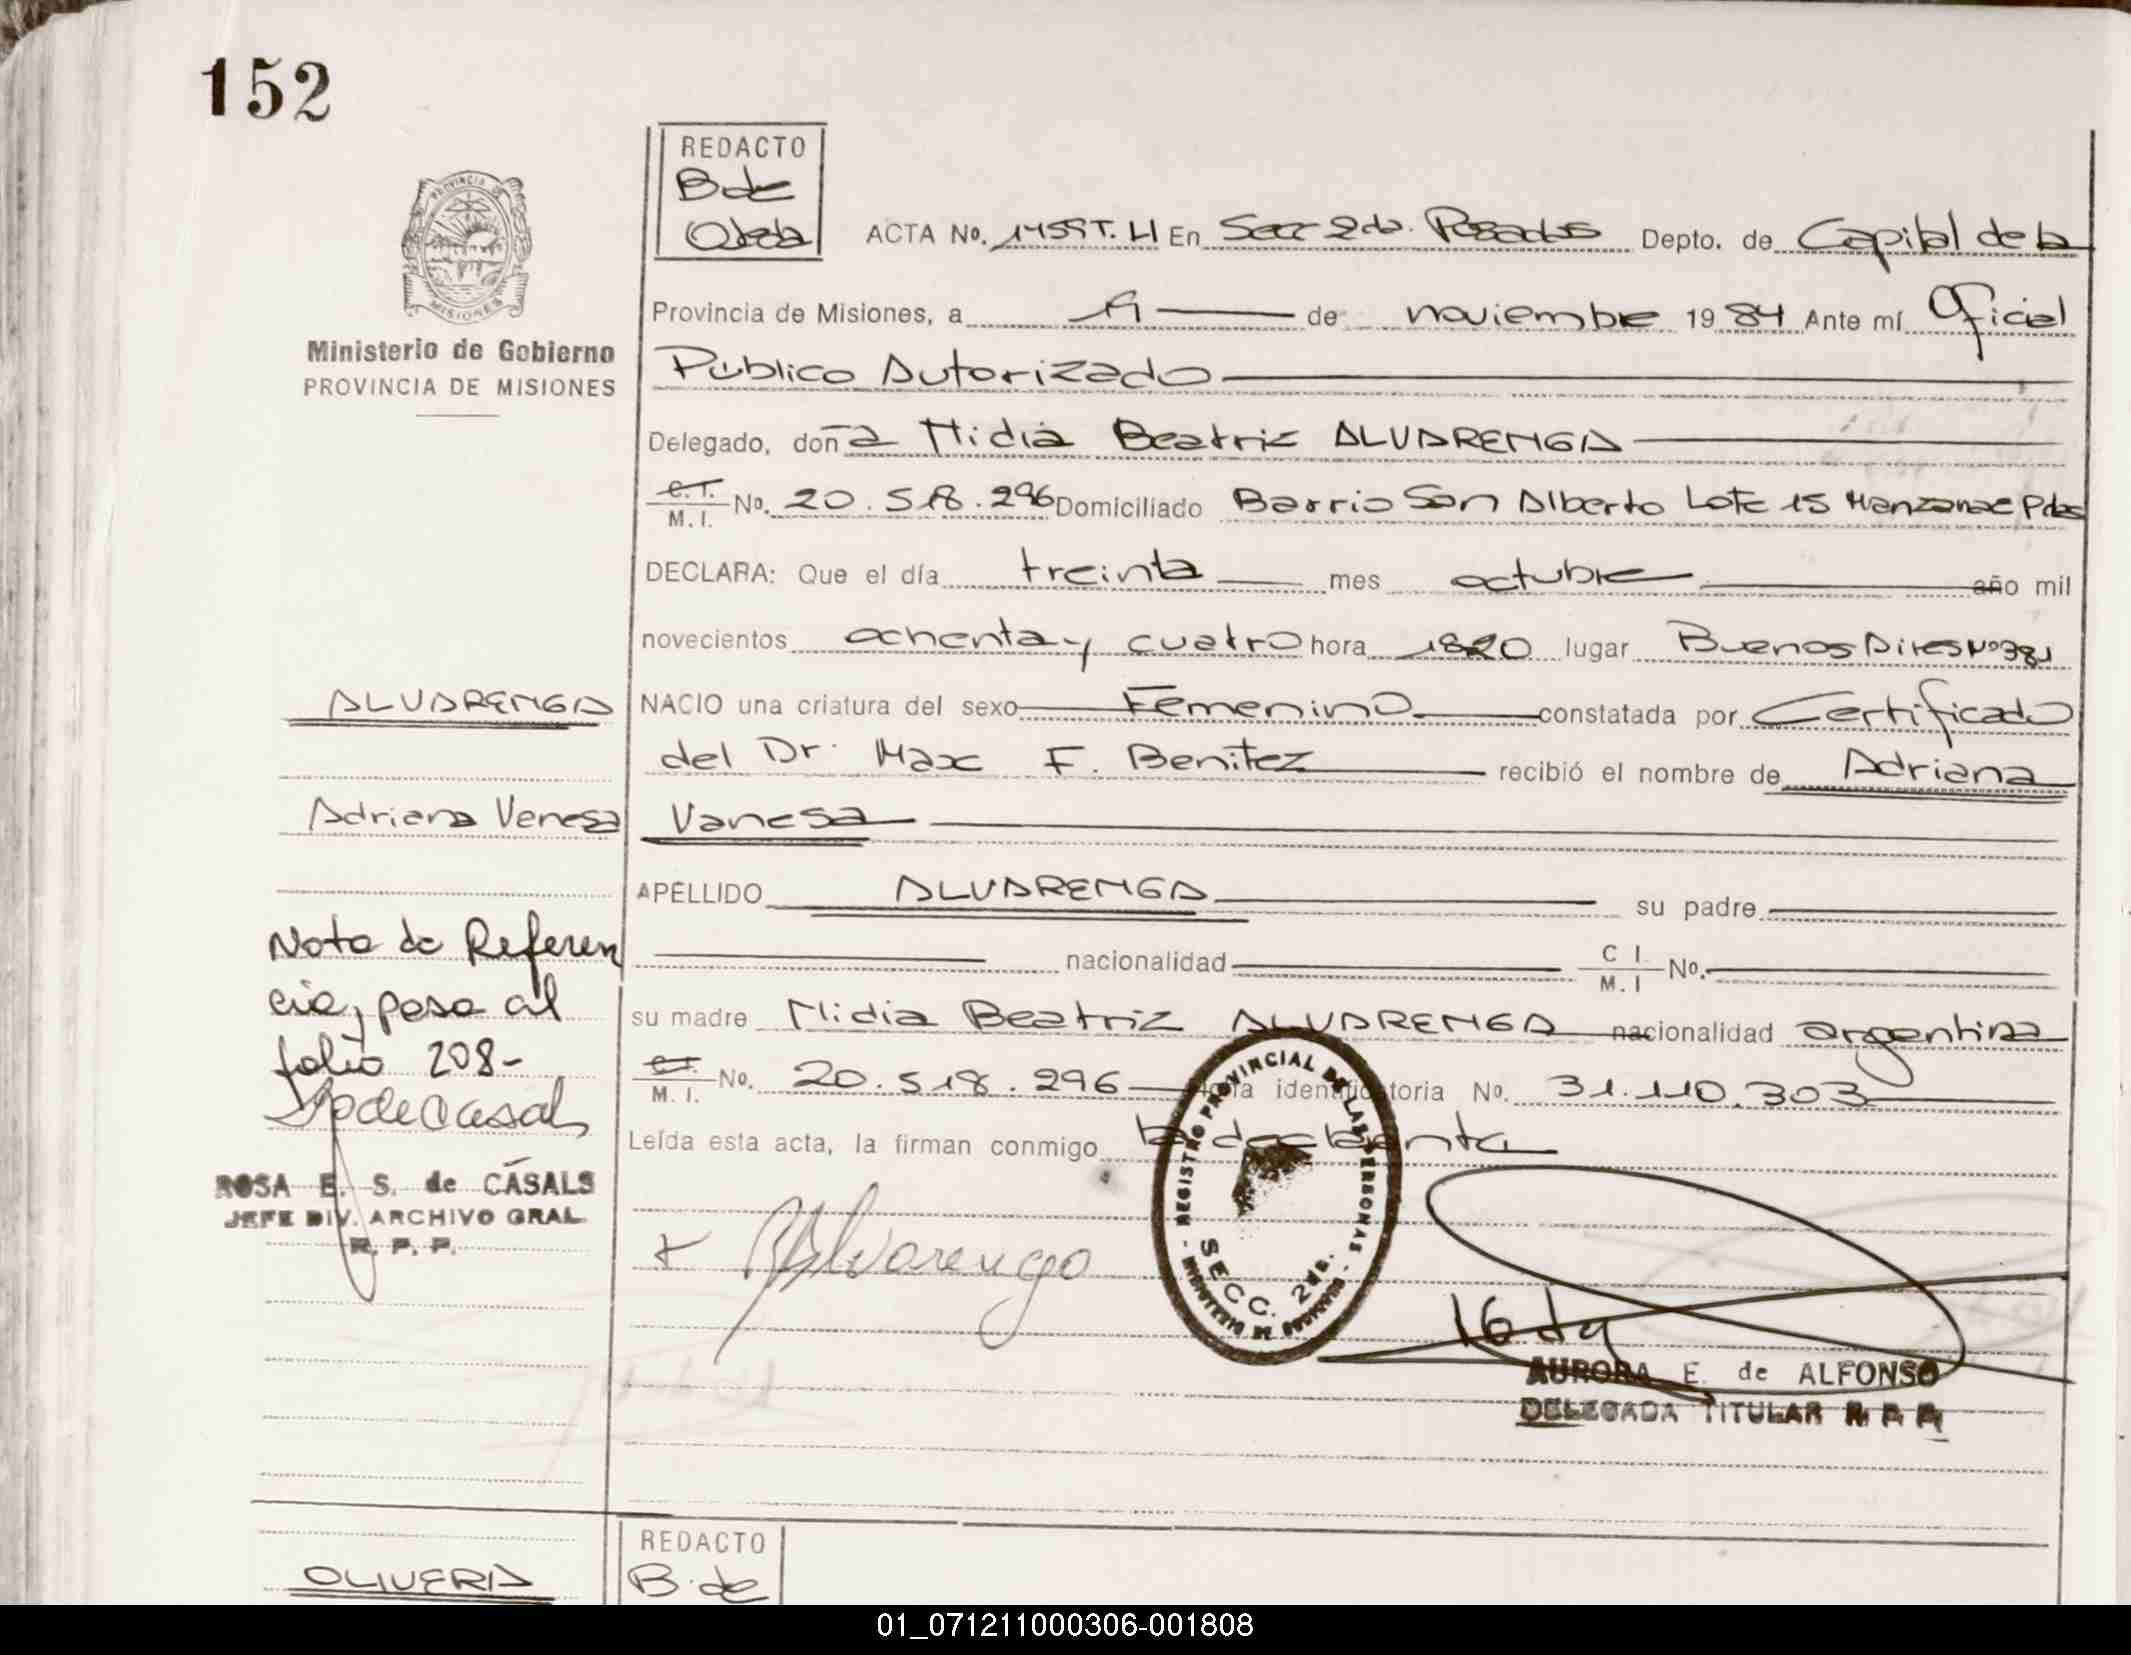 152
PROVINCIA DE
MISIONES
Ministerio de Gobierno
PROVINCIA DE MISIONES
REDACTO
B de
Ojeda
ACTA No. 1459 T. H En Secc 2da. Posadas Depto. de Capital de la
Provincia de Misiones, a de noviembre 1984 Ante mí Oficial
Público Autorizado
Delegado, doña Nidia Beatriz ALVARENGA
C. I. M. I. No. 20.518.296 Domiciliado Barrio San Alberto Lote 15 Manzana Pdas
DECLARA: Que el día treinta mes octubre año mil
novecientos ochenta y cuatro hora 1820 lugar Buenos Aires Nº 381
ALVARENGA
NACIO una criatura del sexo Femenino constatada por Certificado
del Dr. Max F. Benitez recibió el nombre de Adriana
Adriana Vanesa
Vanesa
APELLIDO ALVARENGA su padre
nacionalidad C I. M. I No.
Nota de Referen
cia, pasa al
folio 208-
su madre Nidia Beatriz ALVARENGA nacionalidad argentina
C. I. M. I. No. 20.518.296 identificatoria No. 31.110.303
Leída esta acta, la firman conmigo la declarante
ROSA E. S. de CASALS
JEFE DIV. ARCHIVO GRAL
R. P. P.
Alvarenga
REGISTRO PROVINCIAL DE LAS PERSONAS
SECC. 2da.
MINISTERIO DE GOBIERNO
AURORA E. de ALFONSO
DELEGADA TITULAR R P P
OLIVERA
REDACTO
B. de
01_071211000306-001808